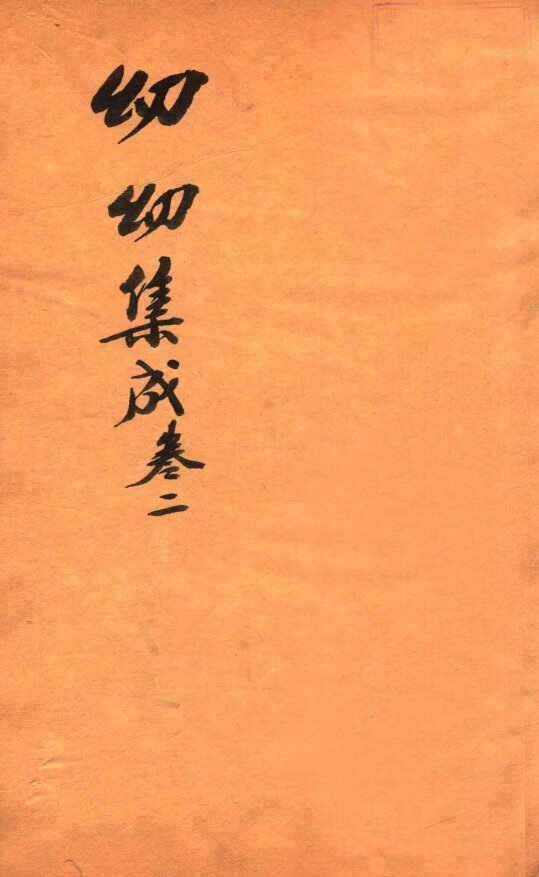 幼幼集成卷二